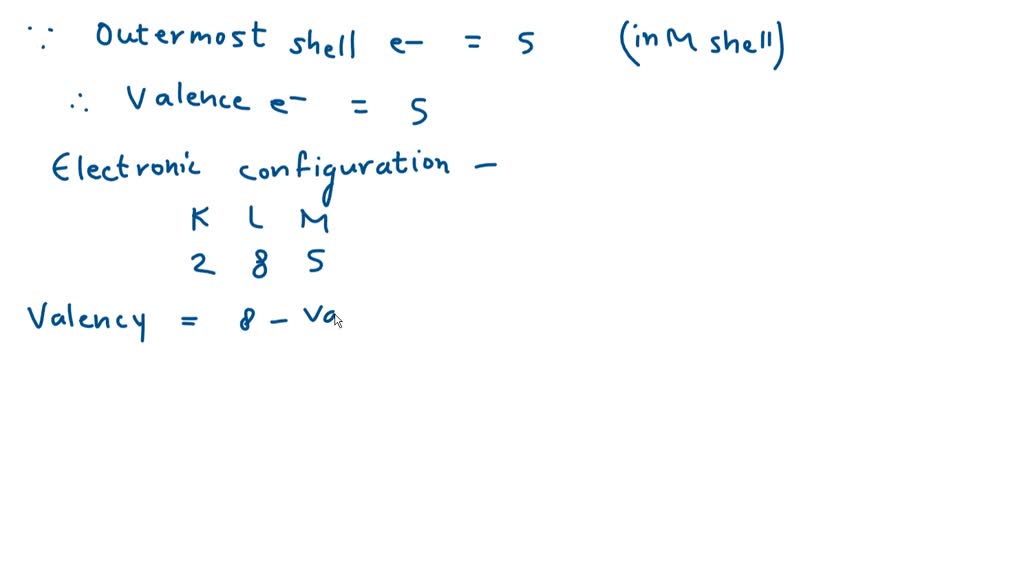 ∵ Outermost shell e- = 5 (in M shell)
∴ Valence e- = 5
Electronic configuration -
K L M
2 8 5
Valency = 8 - Va